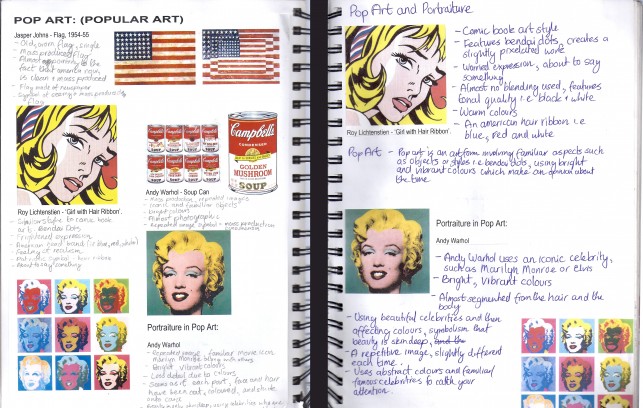 POP ART: (POPULAR ART)
Jasper Johns - Flag, 1954-55
- Old, worn flag, single
- Mass produced flag
- Almost
fact that america
is clean + mass produced
- Flag made of newspaper
- Symbol of
flag
Campbell's
CONDENSED
GOLDEN
MUSHROOM
SOUP
Roy Lichtenstien - 'Girl with Hair Ribbon'.
- Similar style to comic book
art, Bendai Dots
- Frightened expression
- American (red, blue, white)
- of realism
- hair ribbon
- About to say something
Andy Warhol - Soup Can
- Mass production, repeated images
- Iconic and familiar objects
- Bright colours
- Almost photographic
- Repeated image symbol = mass production
Portraiture in Pop Art:
Andy Warhol
- Repeated image, familiar movie icon,
marilyn monroe along with others
- Bright vibrant colours
- Less detail due to colours
- Seems as if each part, face and hair
have been cut, coloured, and stuck
onto canvas
Pop Art and Portraiture
- Comic book art style
- Features bendai dots, creates a
slightly pixelated work
- Worried expression, about to say
something
- Almost no blending used, features
tonal quality i.e black + white
- Warm colours
- An american hair ribbon i.e
blue, red and white
Roy Lichtenstien - 'Girl with Hair Ribbon'.
Pop Art - Pop art is an art form involving familiar aspects such
as objects or styles i.e bendai dots, using bright
and vibrant colours which make an opinion about
the time
Portraiture in Pop Art:
Andy Warhol
- Andy Warhol uses an iconic celebrity,
such as Marilyn Monroe or Elvis
- Bright, vibrant colours
- Almost segmented from the hair and the
body
- Using beautiful celebrities and then
affecting colours, symbolism that
beauty is skin deep, and the
- A repetitive image, slightly different
each time.
- Uses abstract colours and familiar/
famous celebrities to catch your
attention.